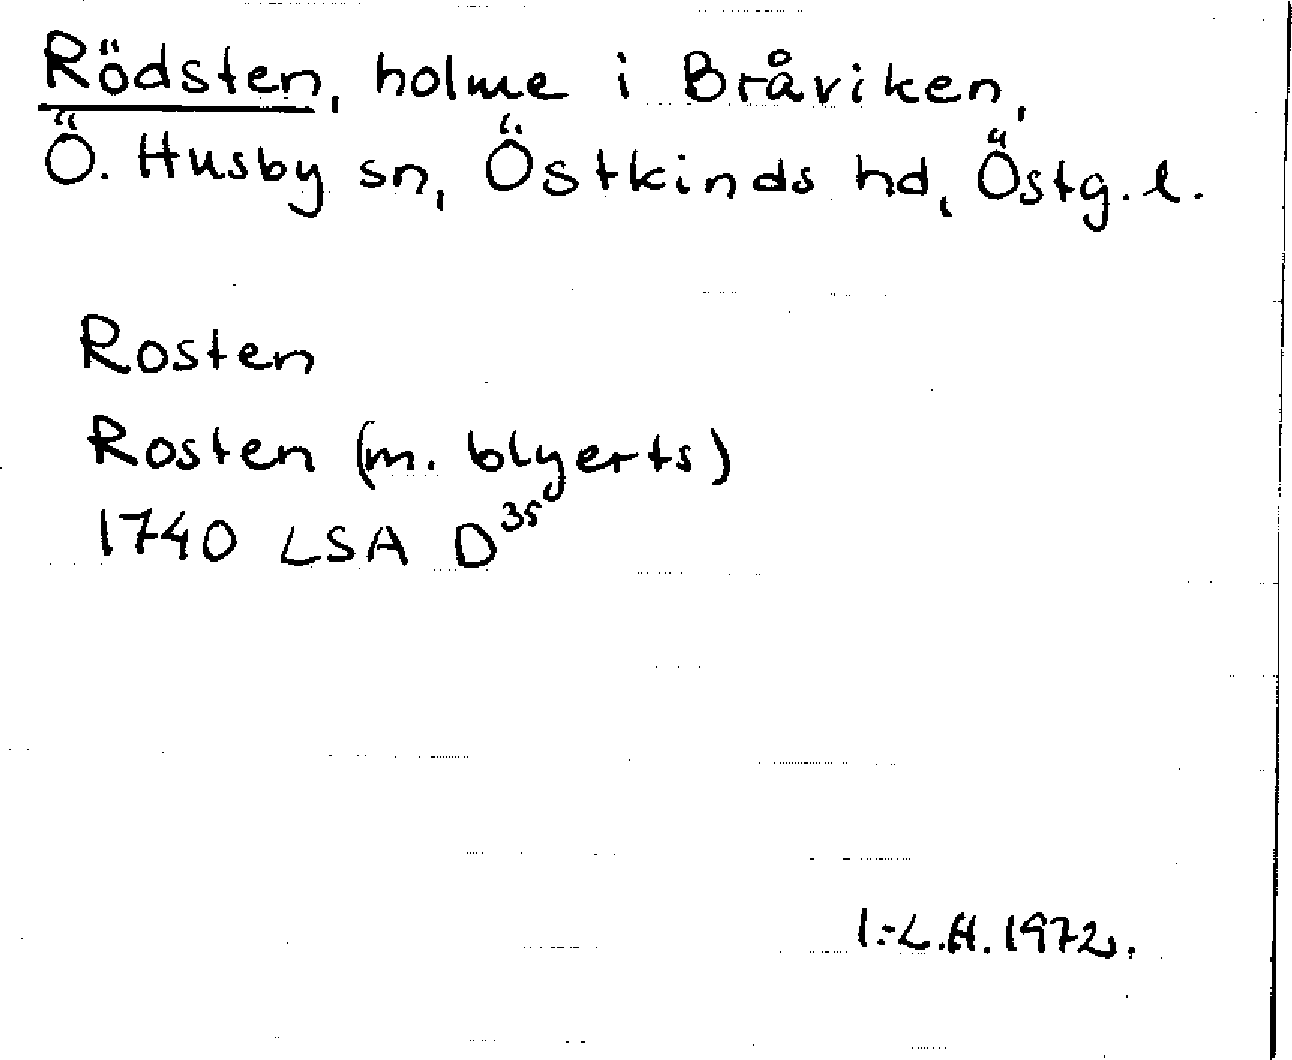 Rödsten, holme i Bråviken,
Ö. Husby sn, Östkinds hd, Östg. l.
Rosten
Rosten (m. blyerts)
1740 LSA D³⁵
I.-L.H. 1972.